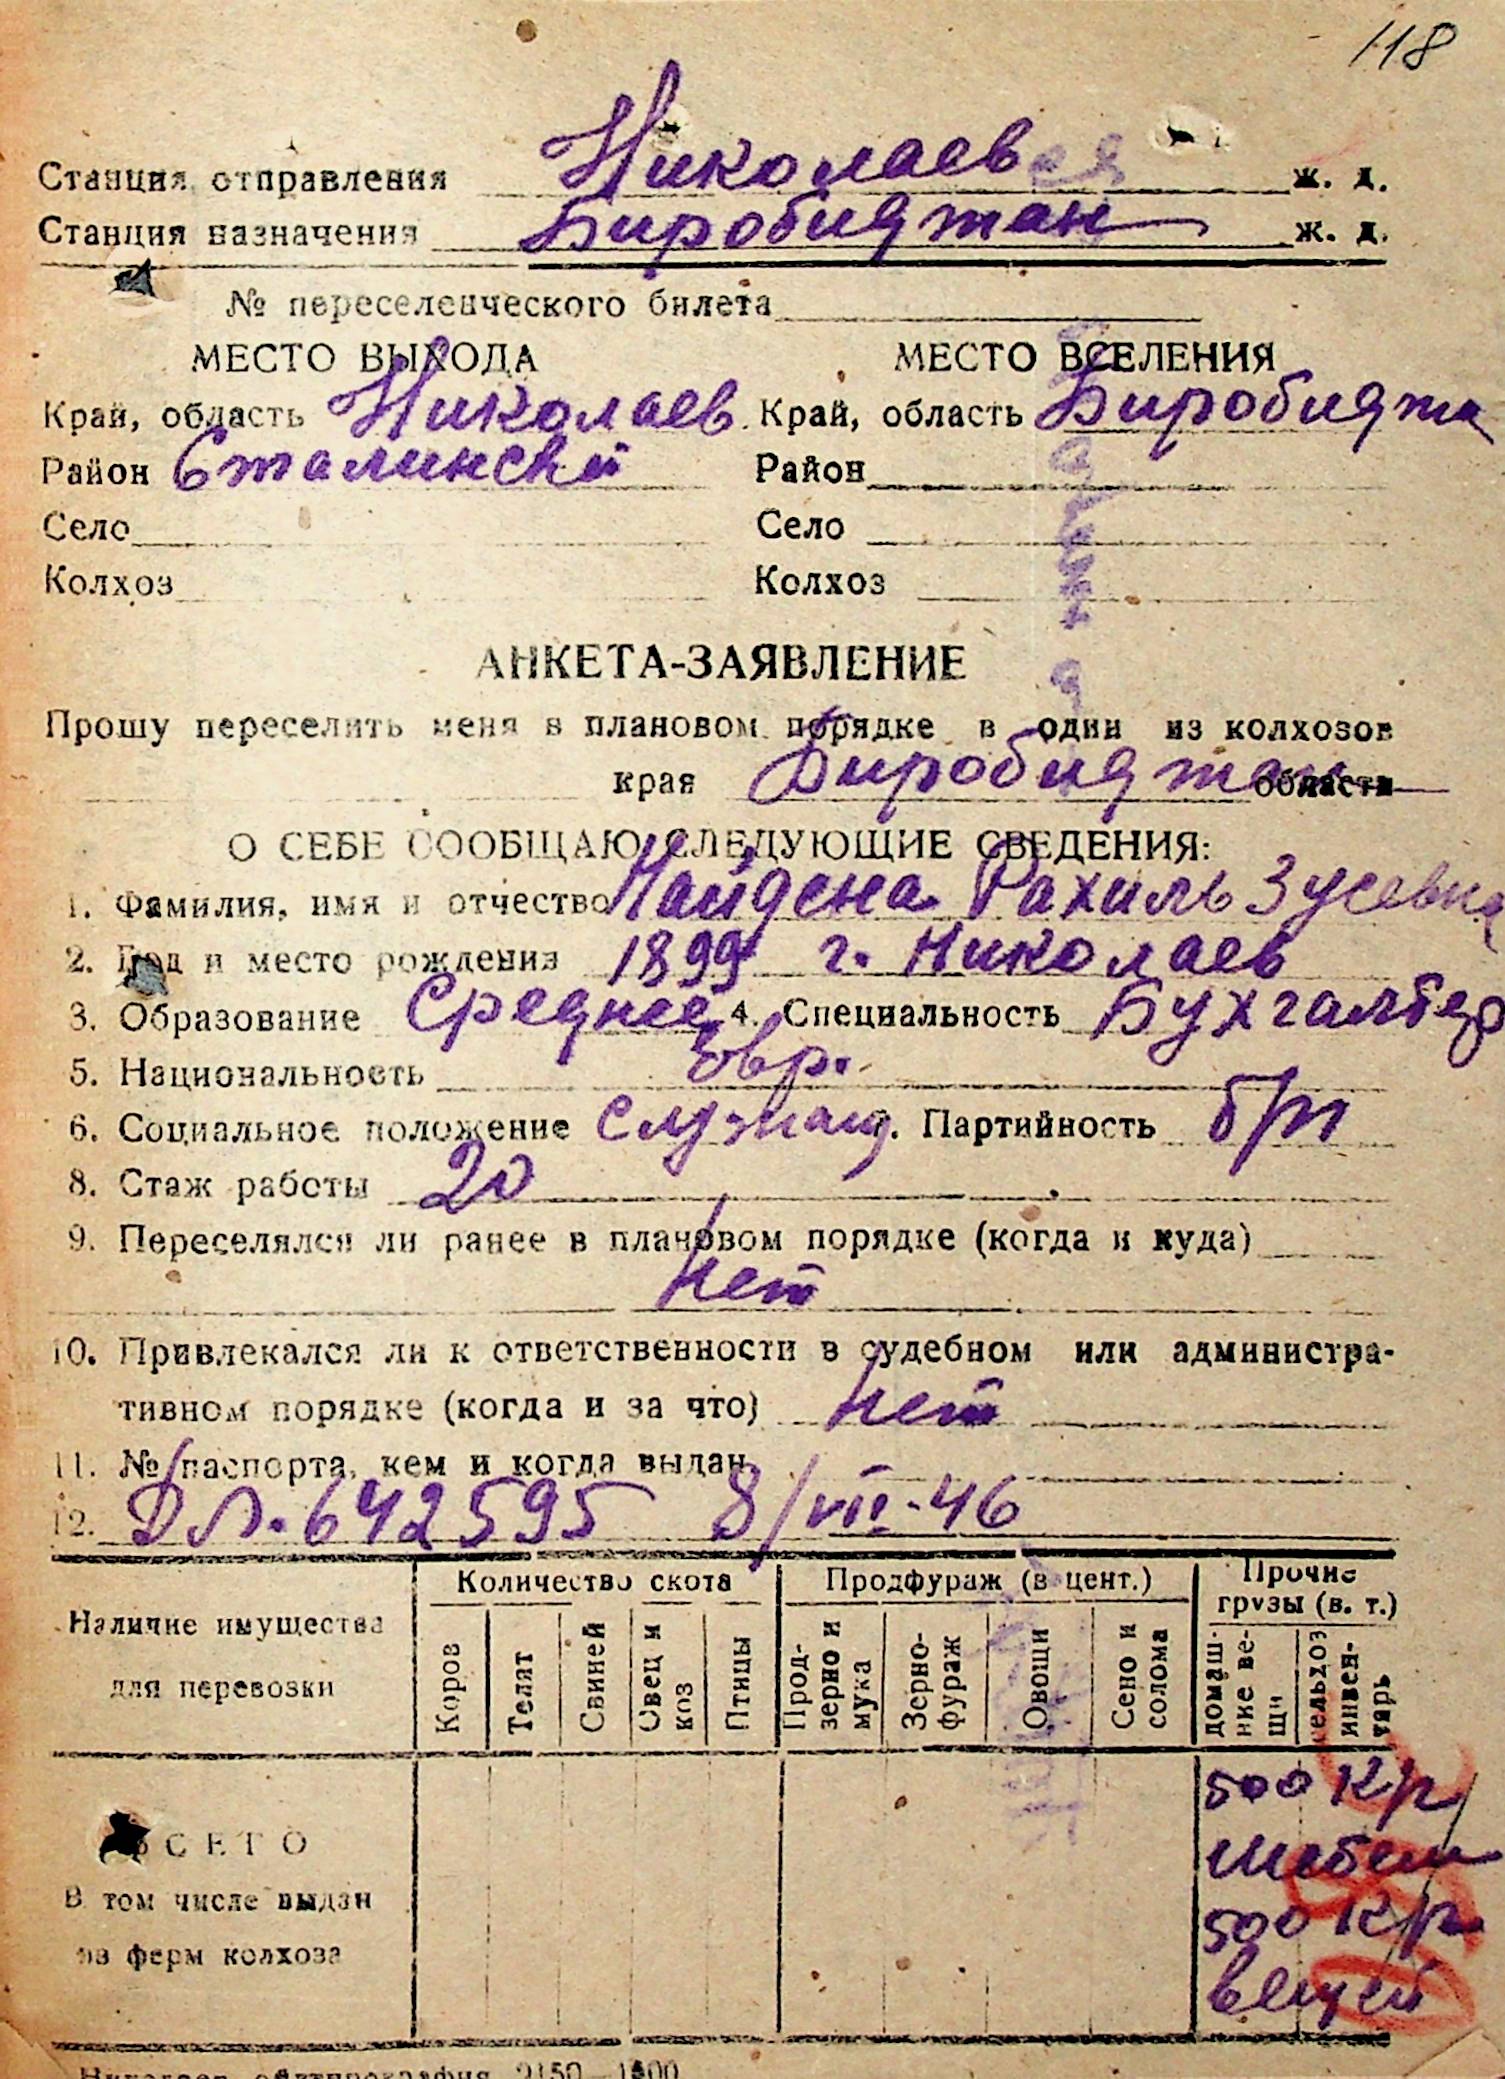 118
Станция отправления Николаевск ж. д.
Станция назначения Биробиджан ж. д.
№ переселенческого билета
МЕСТО ВЫХОДА МЕСТО ВСЕЛЕНИЯ
Край, область Николаев. Край, область Биробиджа
Район Сталинский Район
Село Село
Колхоз Колхоз
АНКЕТА-ЗАЯВЛЕНИЕ
Прошу переселить меня в плановом порядке в один из колхозов
края Биробиджан области
О СЕБЕ СООБЩАЮ СЛЕДУЮЩИЕ СВЕДЕНИЯ:
1. Фамилия, имя и отчество Найдена Рахиль Зусевна
2. Год и место рождения 1899 г. Николаев
3. Образование Среднее 4. Специальность Бухгалтер
5. Национальность Евр.
6. Социальное положение служащ. Партийность б/п
8. Стаж работы 20
9. Переселялся ли ранее в плановом порядке (когда и куда)
Нет
10. Привлекался ли к ответственности в судебном или администра-
тивном порядке (когда и за что) Нет
11. № паспорта, кем и когда выдан
12. 642595 8/VII-46
Наличие имущества для перевозки
Количество скота Продфураж (в цент.) Прочие грузы (в. т.)
Коров Телят Свиней Овец и коз Птицы Прод-зерно и мука Зерно-фураж Овощи Сено и солома домаш-ние ве-щи сельхоз инвен-тарь
ВСЕГО
В том числе выдан
из ферм колхоза
500 Кг
мебели
500 Кг
вещей